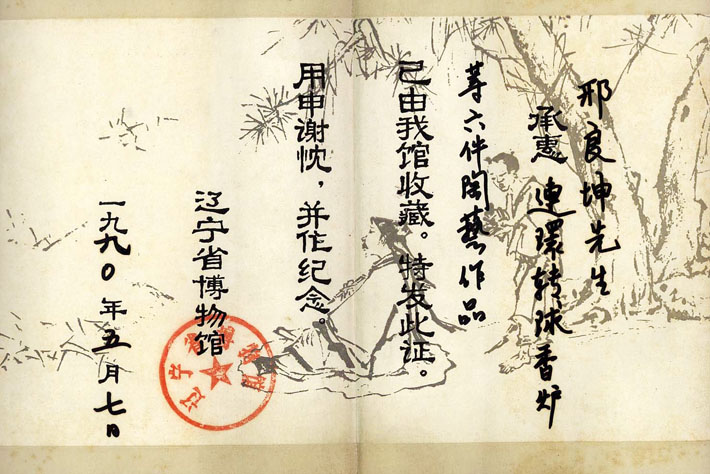 邢良坤先生
承惠 連環转球香炉
等六件陶藝作品
已由我馆收藏。特发此证。
用申谢忱，并作纪念。
辽宁省博物馆
一九九〇年五月七日
辽宁省博物馆